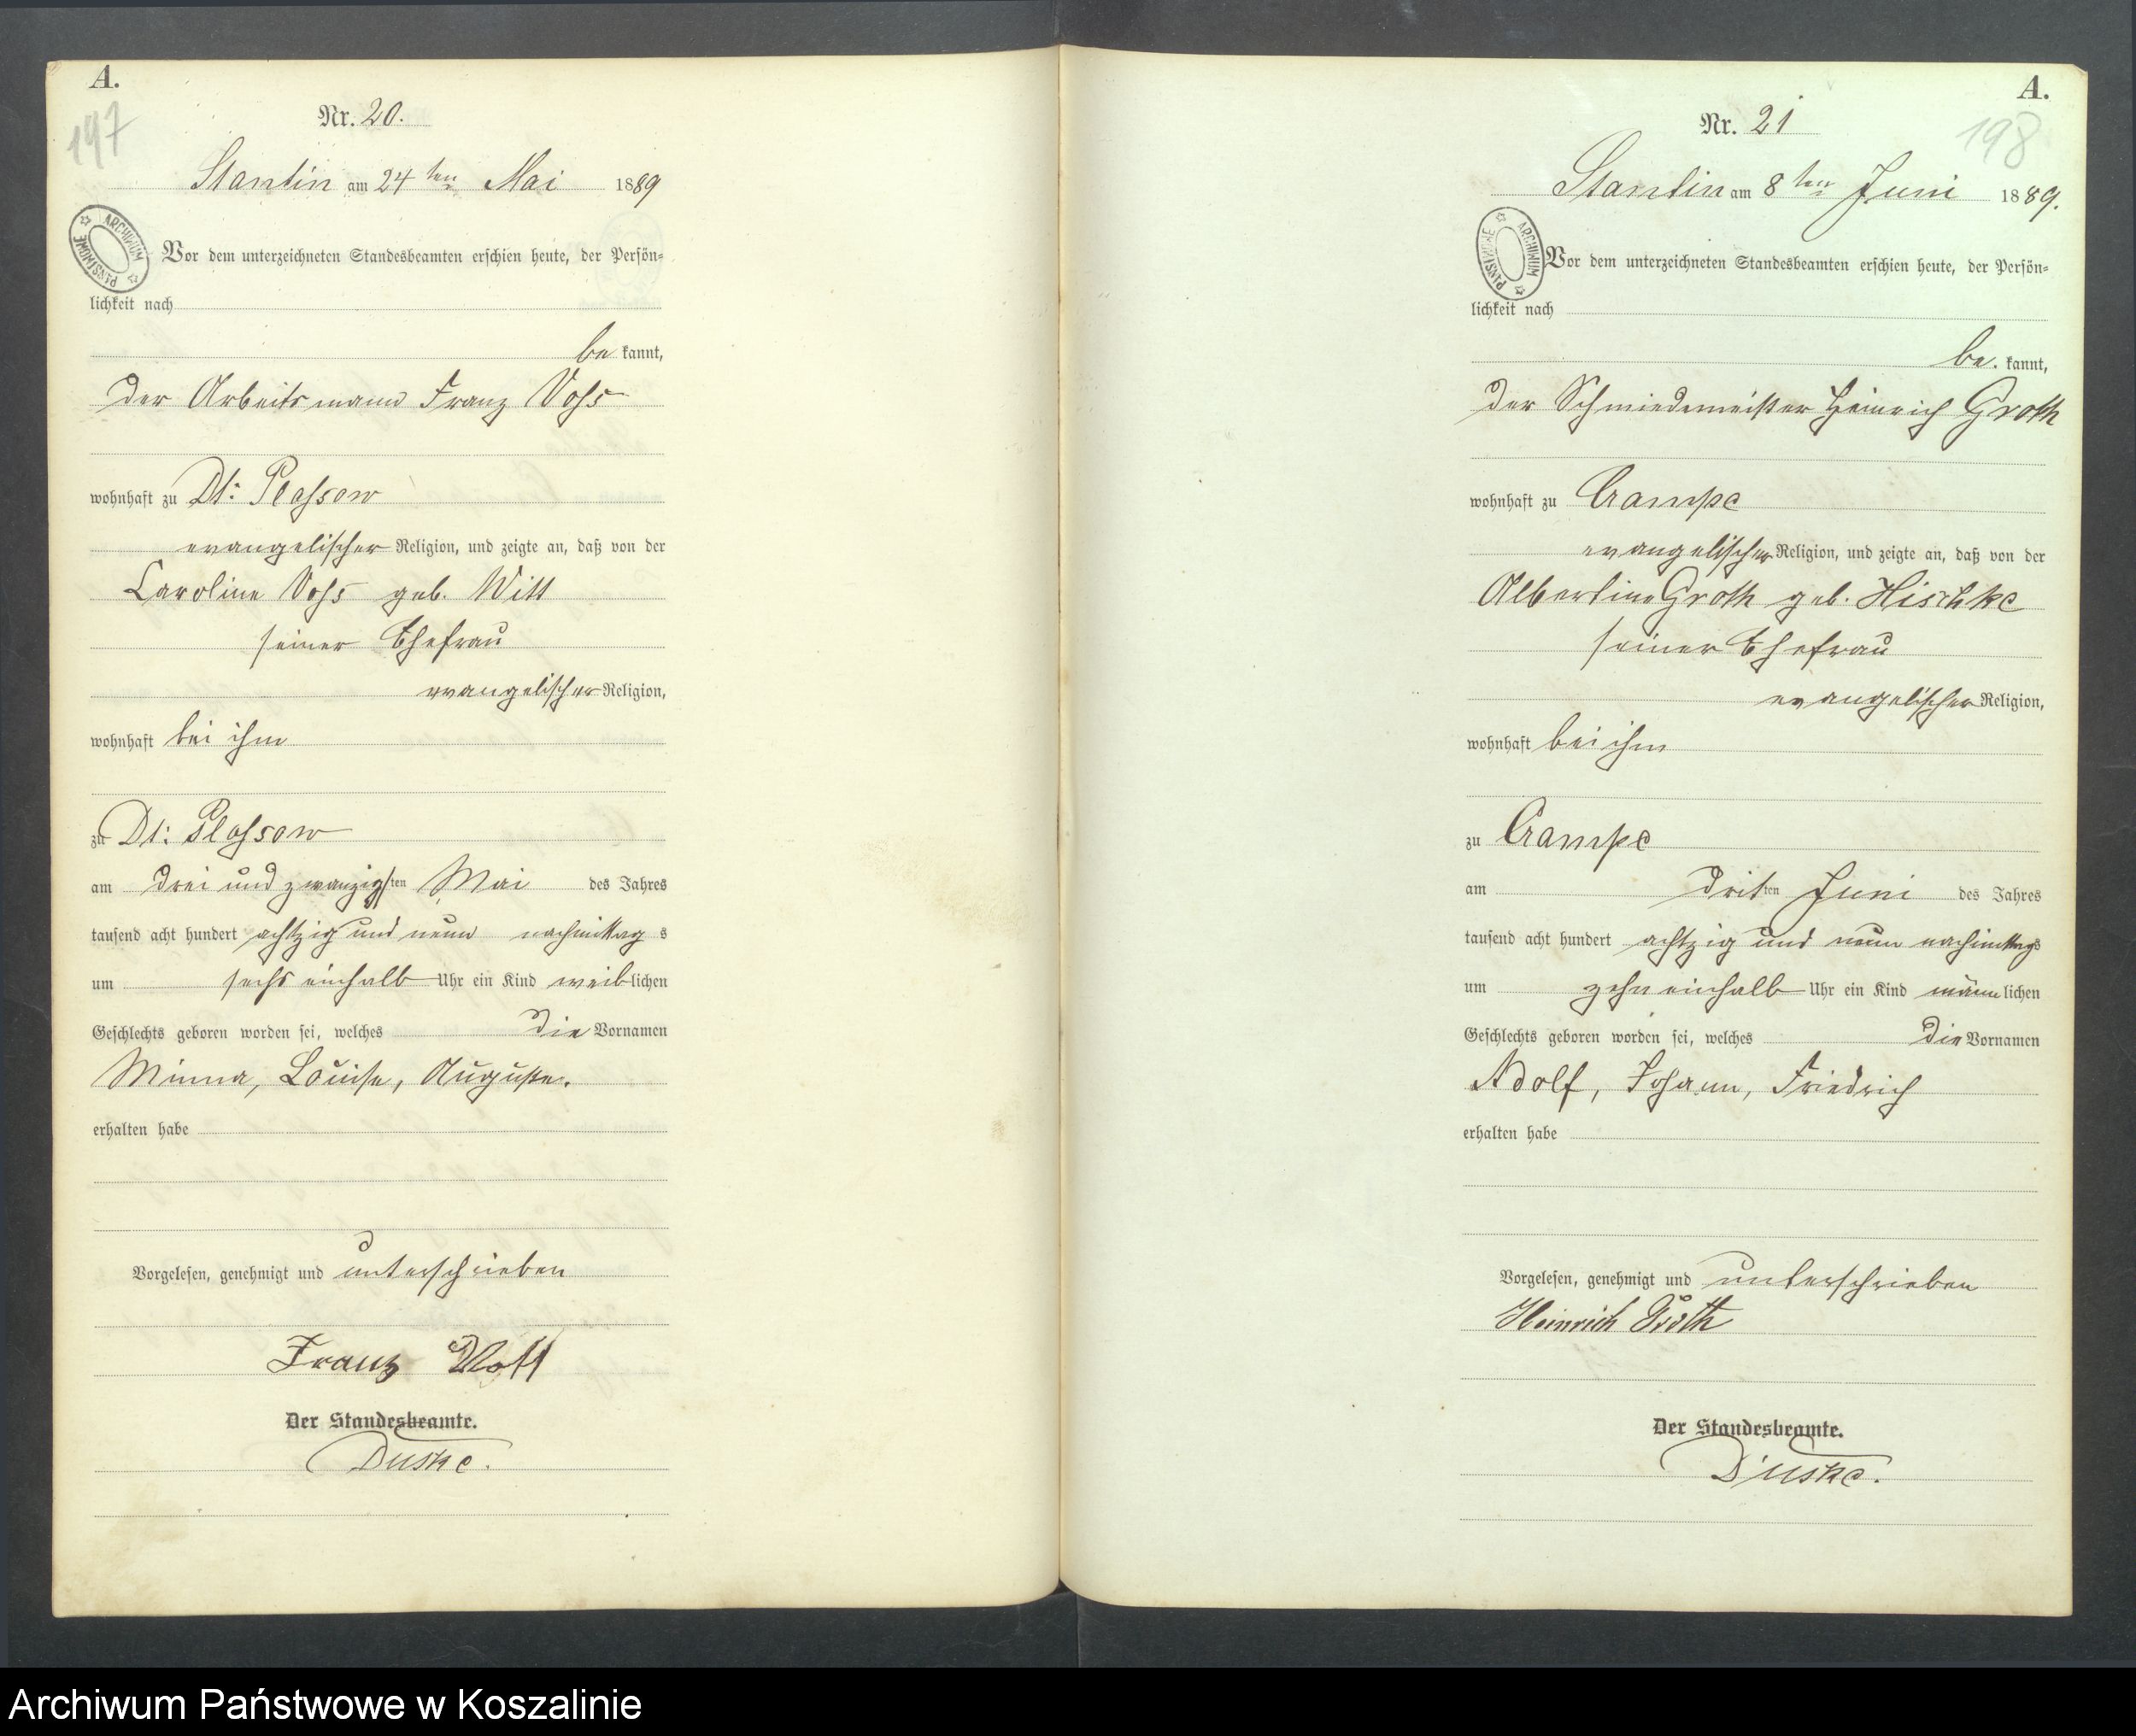 A.
197
Nr. 20.
Stantin am 24ten Mai 1889
ARCHIWUM PAŃSTWOWE
Vor dem unterzeichneten Standesbeamten erschien heute, der Persön-
lichkeit nach
be kannt,
der Arbeitsmann Franz Voss
wohnhaft zu Dt: Plassow
evangelischer Religion, und zeigte an, daß von der
Caroline Voss geb. Witt
seiner Ehefrau
evangelischer Religion,
wohnhaft bei ihm
zu Dt: Plassow
am drei und zwanzigsten Mai des Jahres
tausend acht hundert achtzig und neun nachmittags
um sechs einhalb Uhr ein Kind weiblichen
Geschlechts geboren worden sei, welches die Vornamen
Minna, Louise, Auguste.
erhalten habe
Vorgelesen, genehmigt und unterschrieben
Franz
Der Standesbeamte.
Duske.
A.
198
Nr. 21
Stantin am 8ten Juni 1889.
ARCHIWUM PAŃSTWOWE
Vor dem unterzeichneten Standesbeamten erschien heute, der Persön-
lichkeit nach
be. kannt,
der Schmiedemeister Heinrich Groth
wohnhaft zu Crampe
evangelischer Religion, und zeigte an, daß von der
Albertine Groth geb. Hischke
seiner Ehefrau
evangelischer Religion,
wohnhaft bei ihm
zu Crampe
am dritten Juni des Jahres
tausend acht hundert achtzig und neun nachmittags
um zehn einhalb Uhr ein Kind männlichen
Geschlechts geboren worden sei, welches die Vornamen
Adolf, Johann, Friedrich
erhalten habe
Vorgelesen, genehmigt und unterschrieben
Heinrich Groth
Der Standesbeamte.
Duske.
Archiwum Państwowe w Koszalinie